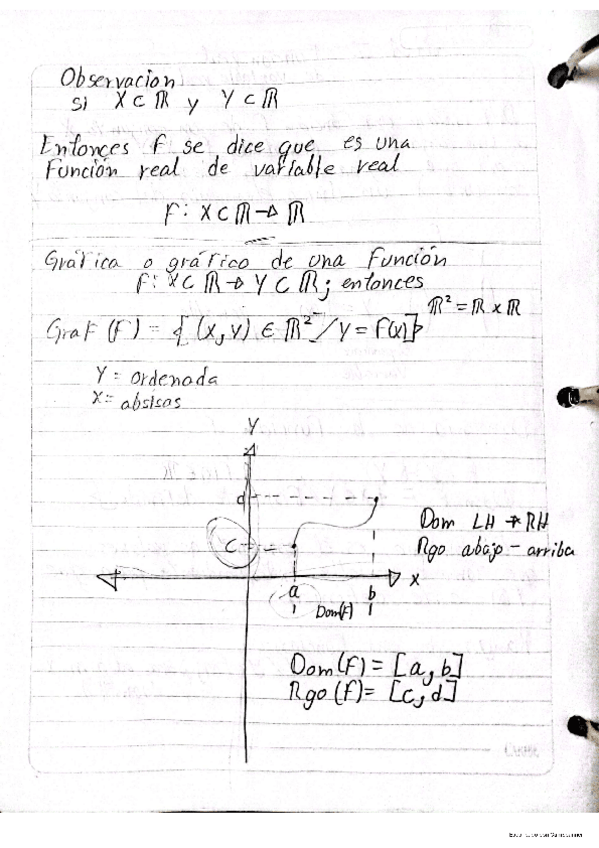 Observacion
Si X ⊂ ℝ y Y ⊂ ℝ
Entonces F se dice que es una
Función real de variable real
F: X ⊂ ℝ → ℝ
Gráfica o gráfico de una Función
F: X ⊂ ℝ → Y ⊂ ℝ; entonces
ℝ² = ℝ x ℝ
Graf (F) = {(x,y) ∈ ℝ² / y = F(x)}
Y = ordenada
X = absisas
Y
d
C
a
b
X
Dom(F)
Dom LH → RH
Rgo abajo - arriba
Dom(F) = [a, b]
Rgo (f) = [c, d]